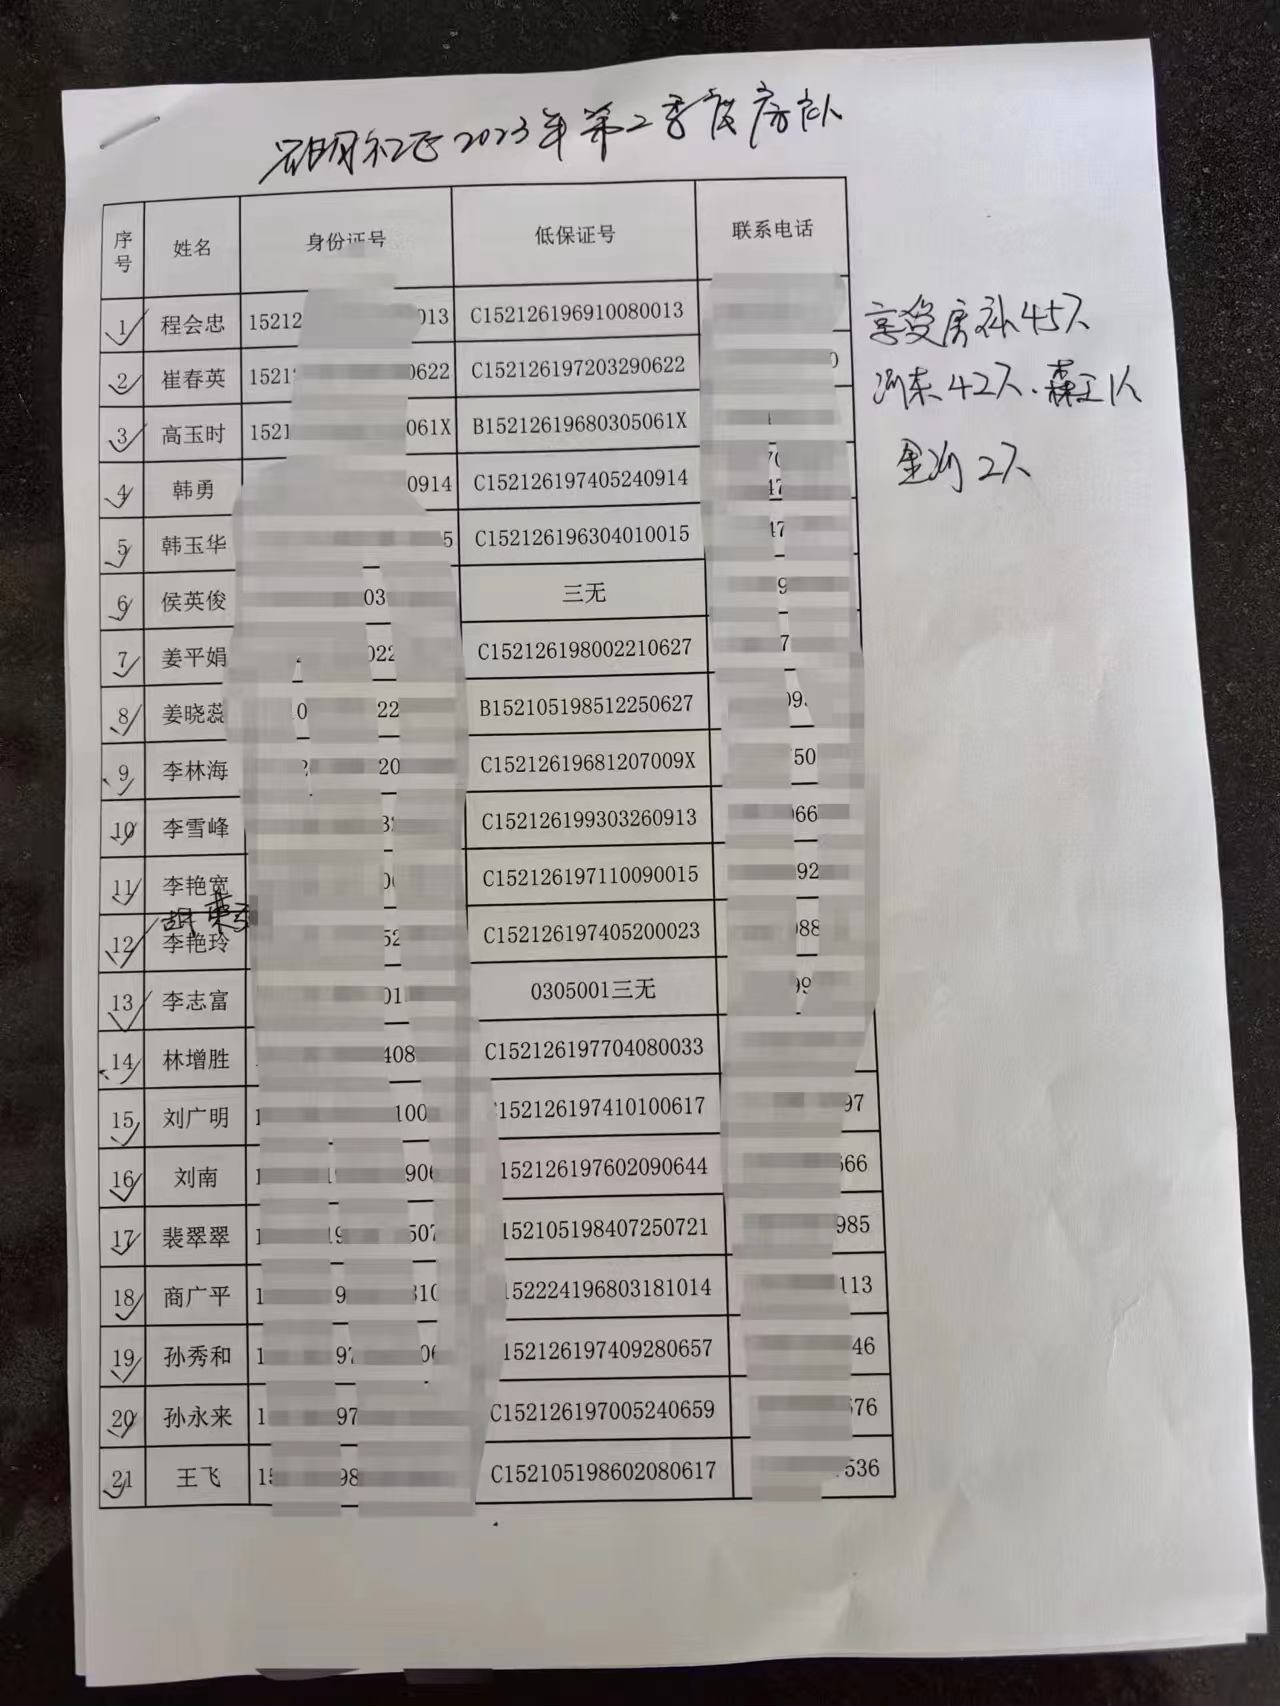 2023年第二季度房补
序号 姓名 身份证号 低保证号 联系电话
1 程会忠 15212 013 C152126196910080013
2 崔春英 1521 0622 C152126197203290622 0
3 高玉时 1521 061X B15212619680305061X
4 韩勇 0914 C152126197405240914
5 韩玉华 5 C152126196304010015 47
6 侯英俊 03 三无 9
7 姜平娟 022 C152126198002210627 7
8 姜晓蕊 0 22 B152105198512250627 09
9 李林海 20 C15212619681207009X 50
10 李雪峰 C152126199303260913 066
11 李艳宽 C152126197110090015 92
12 李艳玲 52 C152126197405200023 088
13 李志富 01 0305001三无 99
14 林增胜 408 C152126197704080033
15 刘广明 1 100 152126197410100617 97
16 刘南 1 906 152126197602090644 666
17 裴翠翠 1 19 507 152105198407250721 985
18 商广平 1 9 310 152224196803181014 113
19 孙秀和 1 97 06 152126197409280657 46
20 孙永来 1 97 C152126197005240659 676
21 王飞 15 98 C152105198602080617 536
享受房补45人
河东42人.森工1人
2人